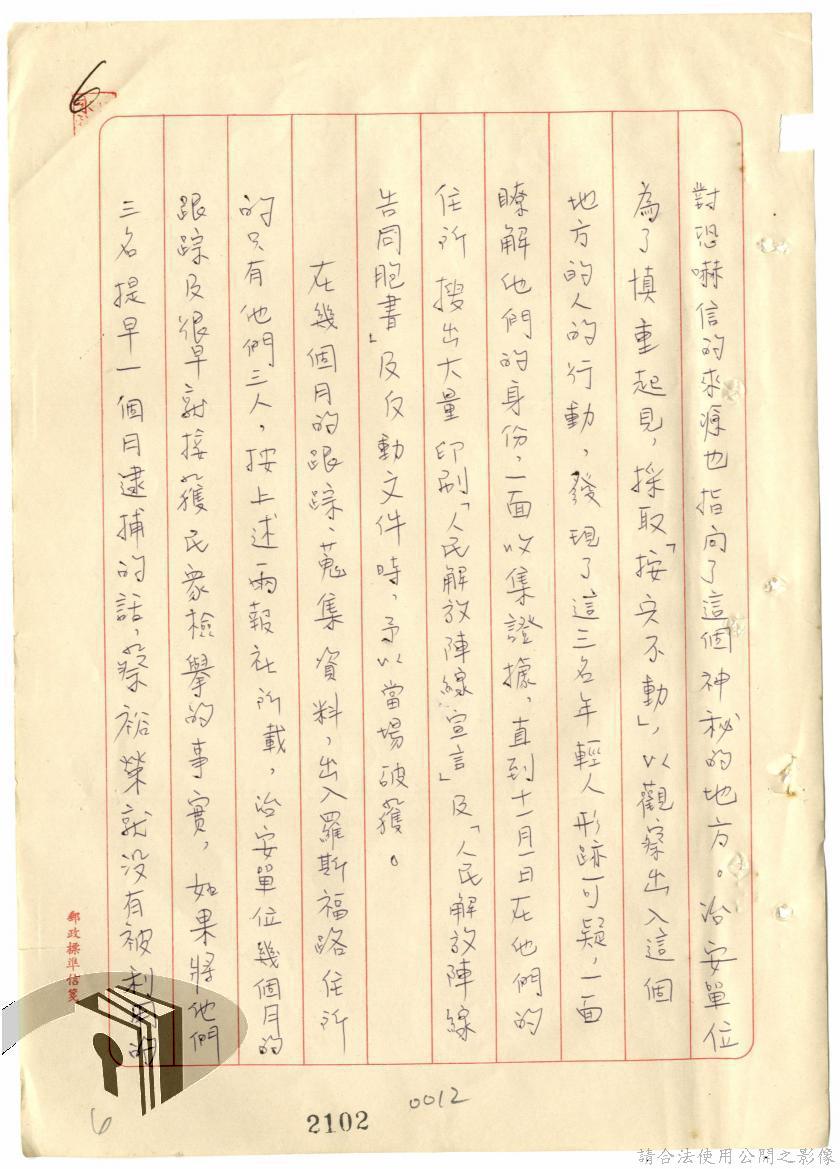 6
對恐嚇信的來源也指向了這個神秘的地方。治安單位
為了慎重起見，採取「按兵不動」，以觀察出入這個
地方的人的行動，發現了這三名年輕人形跡可疑，一面
瞭解他們的身份，一面收集證據，直到十一月一日在他們的
住所搜出大量印刷「人民解放陣線宣言」及「人民解放陣線
告同胞書」及反動文件時，予以當場破獲。
在幾個月的跟踪、蒐集資料，出入羅斯福路住所
的只有他們三人，按上述兩報社所載，治安單位幾個月的
跟踪及很早就接獲民眾檢舉的事實，如果將他們
三名提早一個月逮捕的話，蔡裕榮就没有被利用的
郵政標準信箋
6
2102
0012
請合法使用公開之影像